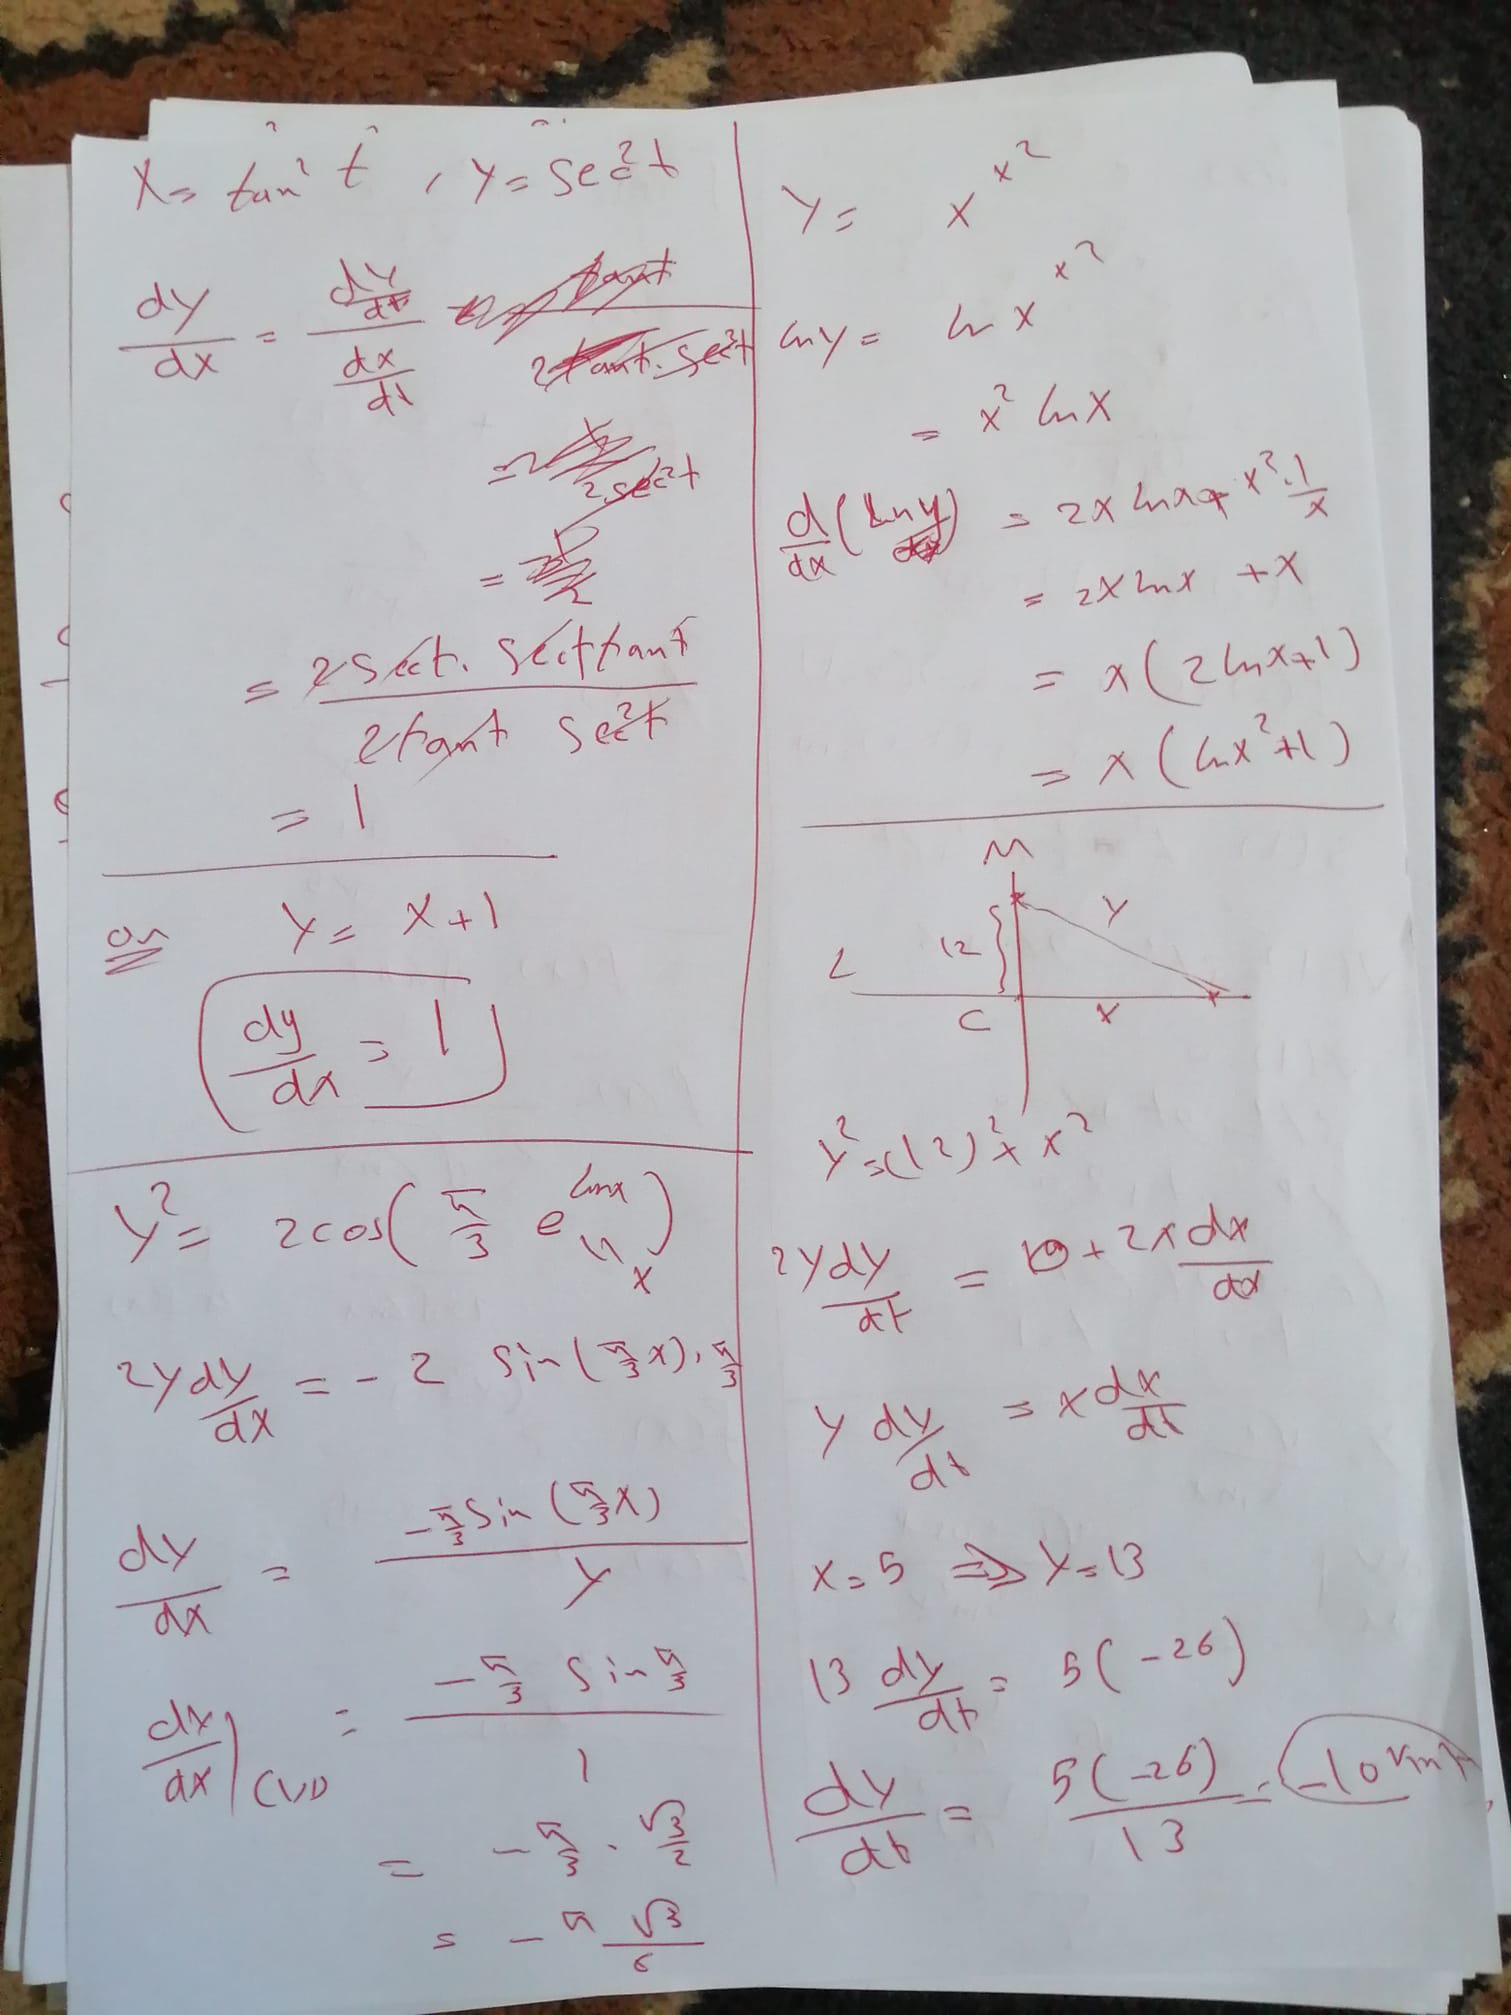 x = tan² t , y = sec² t
dy/dx = (dy/dt)/(dx/dt)
= (2 sec t . sec t tan t)/(2 tan t sec² t)
= 1
on y = x + 1
dy/dx = 1
y² = 2cos( π/3 e^{ln x} )
x
2y dy/dx = - 2 sin( π/3 x) . π/3
dy/dx = (- π/3 sin ( π/3 x))/y
dy/dx | (1,1) = (- π/3 sin π/3)/1
= - π/3 . √3/2
= - π √3/6
y = x^{x²}
ln y = ln x^{x²}
= x² ln x
d/dx (ln y) = 2x ln x + x² . 1/x
= 2x ln x + x
= x ( 2 ln x + 1 )
= x ( ln x² + 1 )
M
12 y
L
C x
y² = (12)² + x²
2y dy/dt = 0 + 2x dx/dt
y dy/dt = x dx/dt
x = 5 ⇒ y = 13
13 dy/dt = 5( -26)
dy/dt = 5( -26)/13 = -10